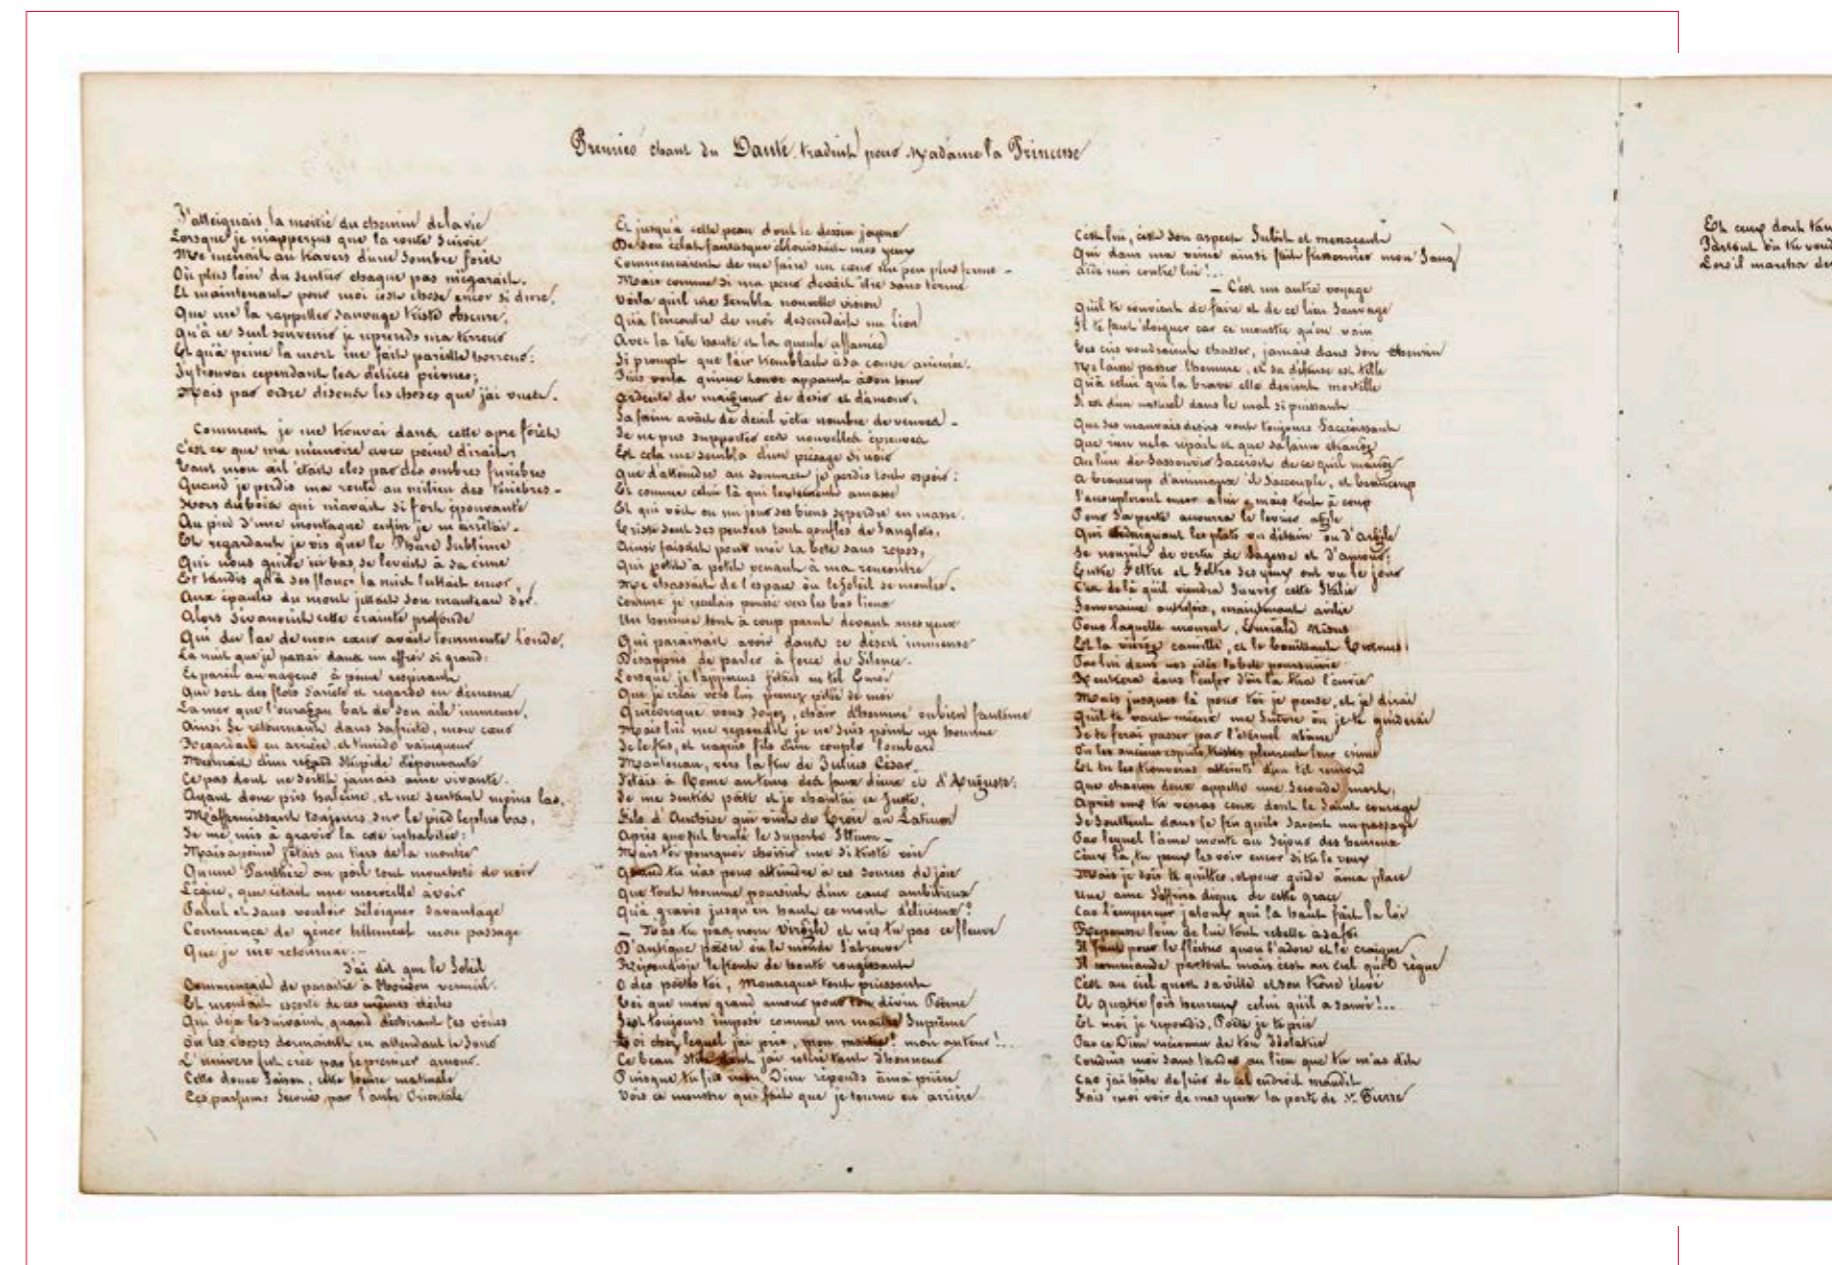 Premier chant du Dante traduit pour Madame la Princesse
J'atteignais la moitié du chemin de la vie
Lorsque je m'apperçus que la route suivie
Me menait au travers d'une sombre forêt
Où plus loin du sentier chaque pas m'égarait.
Et maintenant pour moi c'est chose encor si dure,
Que me la rappeller sauvage triste obscure,
Qu'à ce seul souvenir je reprends ma terreur
Et qu'à peine la mort me fait pareille horreur:
J'y trouvai cependant les délices prévues;
Mais par ordre disons les choses que j'ai vues.
Comment je me trouvai dans cette apre forêt
C'est ce que ma mémoire avec peine dirait;
Tant mon œil était clos par des ombres funèbres
Quand je perdis ma route au milieu des ténèbres -
Hors du bois qui m'avait si fort épouvanté
Au pied d'une montagne enfin je m'arrêtai -
Et regardant je vis que le Phare sublime
Qui nous guide ici bas, se levait à sa cime
Et tandis qu'à ses flancs la nuit luttait encor,
Aux épaules du mont jettait son manteau d'or.
Alors s'évanouit cette crainte profonde
Qui du lac de mon cœur avait tourmenté l'onde,
La nuit que je passai dans un effroi si grand:
Et pareil au nageur à peine respirant
Qui sort des flots s'arrête et regarde en démence
La mer que l'ouragan bat de son aile immense,
Ainsi se retournant dans sa fuite, mon cœur
Regardait en arrière, et timide vainqueur
Mesurait d'un regard stupide d'épouvante
Ce pas dont ne sortit jamais ame vivante.
Ayant donc pris haleine, et me sentant moins las,
M'affermissant toujours sur le pied le plus bas,
Je me mis à gravir la côte inhabitée;
Mais à peine j'étais au tiers de la montée
Qu'une Panthère au poil tout moucheté de noir
Légère, que c'était une merveille à voir
Parut et sans vouloir s'éloigner davantage
Commença de gêner tellement mon passage
Que je me retournai...
J'ai dit que le Soleil
Commençait de paraitre à l'horison vermeil.
Et montait escorté de ces mêmes étoiles
Qui déjà le suivaient quand déchirant les voiles
Où les choses dormaient en attendant le jour
L'univers fut créé par le premier amour.
Cette douce saison, cette heure matinale
Ces parfums secoués par l'aube Orientale
Et jusqu'à cette peau dont le dessin
De son éclat fantasque éblouissait mes yeux
Commencaient de me faire un cœur un peu plus ferme -
Mais comme si ma peur devait être sans terme
Voilà qu'il me sembla nouvelle vision
Qu'à l'encontre de moi descendait un Lion
Avec la tête haute et la gueule affamée
Si prompt que l'air tremblait à sa course animée.
Puis voilà qu'une louve apparut à son tour
Ardente de maigreur de désir et d'amour,
Sa faim avait de deuil vêtu nombre de veuves -
Je ne pus supporter ces nouvelles épreuves
Et cela me sembla d'un présage si noir
Que d'atteindre au sommet je perdis tout espoir:
Et comme celui là qui lentement amasse
Et qui voit en un jour ses biens se perdre en masse.
Triste sent ses pensers tout gonflés de sanglots,
Ainsi faisait pour moi la bête sans repos,
Qui petit à petit venant à ma rencontre
Me chassait de l'espace où le Soleil se montre.
Comme je reculais poussé vers les bas lieux
Un homme tout à coup parut devant mes yeux
Qui paraissait avoir dans ce désert immense
Désappris de parler à force de silence.
Lorsque je l'apperçus j'étais en tel émoi
Que je criai vers lui prenez pitié de moi
Quiconque vous soyez, chair d'homme ou bien fantôme
Mais lui me répondit je ne suis point un homme
Je le fus, et naquis fils d'un couple lombard
Mantouan, vers la fin de Julius César.
J'étais à Rome au tems des faux dieux et d'Auguste:
Je me sentis poëte et je chantai ce Juste,
Fils d'Anchise qui vint de Troie au Latium
Après que fut brulé le superbe Ilium -
Mais toi pourquoi choisir une si triste voie
Quand tu n'as pour atteindre à ces sources de joie
Que tout homme poursuit d'un cœur ambitieux
Qu'à gravir jusqu'en haut ce mont délicieux?
- N'as tu pas nom Virgile et n'es tu pas ce fleuve
D'antique poésie où le monde s'abreuve
Répondis je le front de honte rougissant
O des poëtes toi, Monarque tout puissant
Toi que mon grand amour pour ton divin Poème
S'est toujours imposé comme un maître suprême
Toi chez lequel j'ai pris, mon maître! mon auteur!...
Ce beau style dont j'ai retiré tant d'honneur
Puisque tu fus mon Dieu réponds à ma prière
Vois ce monstre qui fait que je tourne en arrière
C'est lui, c'est son aspect subit et menaçant
Qui dans ma veine ainsi fait frissonner mon sang
Aide moi contre lui!...
- C'est un autre voyage
Qu'il te convient de faire et de ce lieu sauvage
Il te faut éloigner car ce monstre qu'en vain
Tes cris voudraient chasser, jamais dans son chemin
Ne laisse passer l'homme, et sa défense est telle
Qu'à celui qui la brave elle devient mortelle
Il est d'un naturel dans le mal si puissant
Que ses mauvais desirs vont toujours s'accroissant
Que rien ne la repait et que sa faim étrange
Au lieu de s'assouvir s'accroit de ce qu'il mange
A beaucoup d'animaux il s'accouple, et beaucoup
S'accoupleront encor à lui, mais tout à coup
Pour sa perte accourra le levrier agile
Qui dédaignant les plats ou d'étain ou d'argile
Se nourrit de vertu de sagesse et d'amour:
Entre Feltre et Feltro ses yeux ont vu le jour
C'est de là qu'il viendra sauver cette Italie
Souveraine autrefois, maintenant avilie
Pour laquelle mourut, Euriale Nisus
Et la vierge camille, et le bouillant Turnus;
Par lui dans nos cités la bête poursuivie
Rentrera dans l'enfer d'où la tira l'envie
Mais jusques là pour toi je pense, et je dirai
Qu'il te vaut mieux me suivre où je te guiderai
Je te ferai passer par l'éternel abime
Où les anciens esprits tristes pleurent leur crime
Et tu les trouveras atteints d'un tel remord
Que chacun d'eux appelle une seconde mort.
Après eux tu verras ceux dont le saint courage
Se soutient dans le feu qu'ils savent un passage
Par lequel l'âme monte au séjour des heureux
Ceux là, tu peux les voir encor si tu le veux
Mais je dois te quitter, et pour guide à ma place
Une ame s'offrira digne de cette grace
Car l'empereur jaloux qui la haut fait la loi
Repousse loin de lui tout rebelle à sa foi
Il faut pour le fléchir qu'on l'adore et le craigne
Il commande partout mais c'est au ciel qu'il règne
C'est au ciel qu'est sa ville et son trône élevé
Et quatre fois heureux celui qu'il a sauvé!...
Et moi je repondis, Poëte je te prie
Par ce Dieu méconnu de ton Idolatrie
Conduis moi sans tarder au lieu que tu m'as dit
Car j'ai hâte de fuir de cet endroit maudit
Fais moi voir de mes yeux la porte de St. Pierre
Et ceux dont
Partout où tu
Lors il marcha